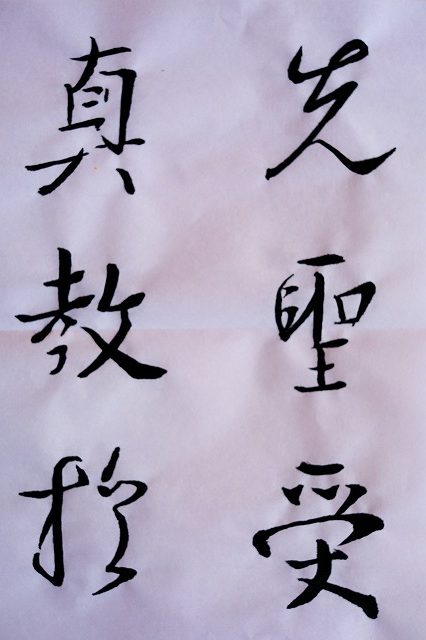 先聖受
真教於